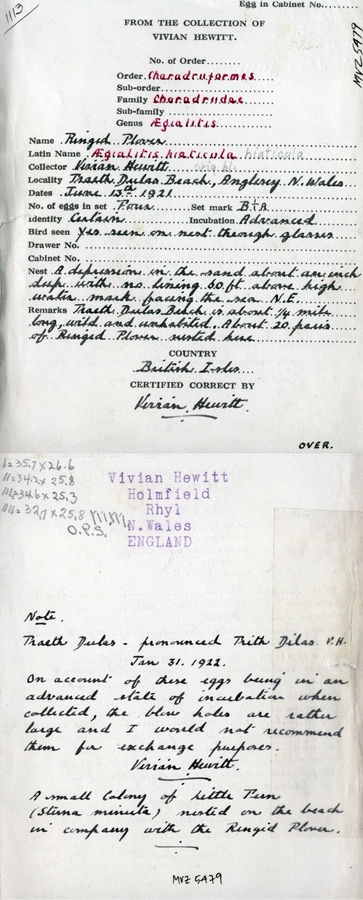 1113
Egg in Cabinet No.......
MVZ 5479
FROM THE COLLECTION OF
VIVIAN HEWITT.
No. of Order..........
Order. Charadriiformes....
Sub-order..........
Family Charadriidae
Sub-family ..........
Genus Ægialitis
Name Ringed Plover
Latin Name Ægialitis hiaticula hiaticula
Collector Vivian Hewitt
Locality Traeth Dulas Beach, Anglesey N. Wales
Dates June. 13th 1921
No. of eggs in set Four Set mark B+A
Identity Certain Incubation Advanced
Bird seen Yes. seen on nest through glasses
Drawer No.
Cabinet No.
Nest A depression in the sand about an inch
deep with no lining 50 ft above high
water mark facing the sea N.E.
Remarks Traeth Dulas Beach is about ¼ mile
long, wild and uninhabited. About 20 pairs
of Ringed Plover nested here
COUNTRY
British Isles
CERTIFIED CORRECT BY
Vivian Hewitt.
OVER.
I=35.7 x 26.6
II=34.2 x 25.8
III=34.6 x 25.3
IIII=32.7 x 25.8 mm.
O.P.S.
Vivian Hewitt
Holmfield
Rhyl
N.Wales
ENGLAND
Note.
Traeth Dulas - pronounced Trith Dilas V.H.
Jan 31. 1922.
On account of these eggs being in an
advanced state of incubation when
collected, the blow holes are rather
large and I would not recommend
them for exchange purposes.
Vivian Hewitt.
A small Colony of Little Tern
(Sterna minuta) nested on the beach
in company with the Ringed Plover.
MVZ 5479